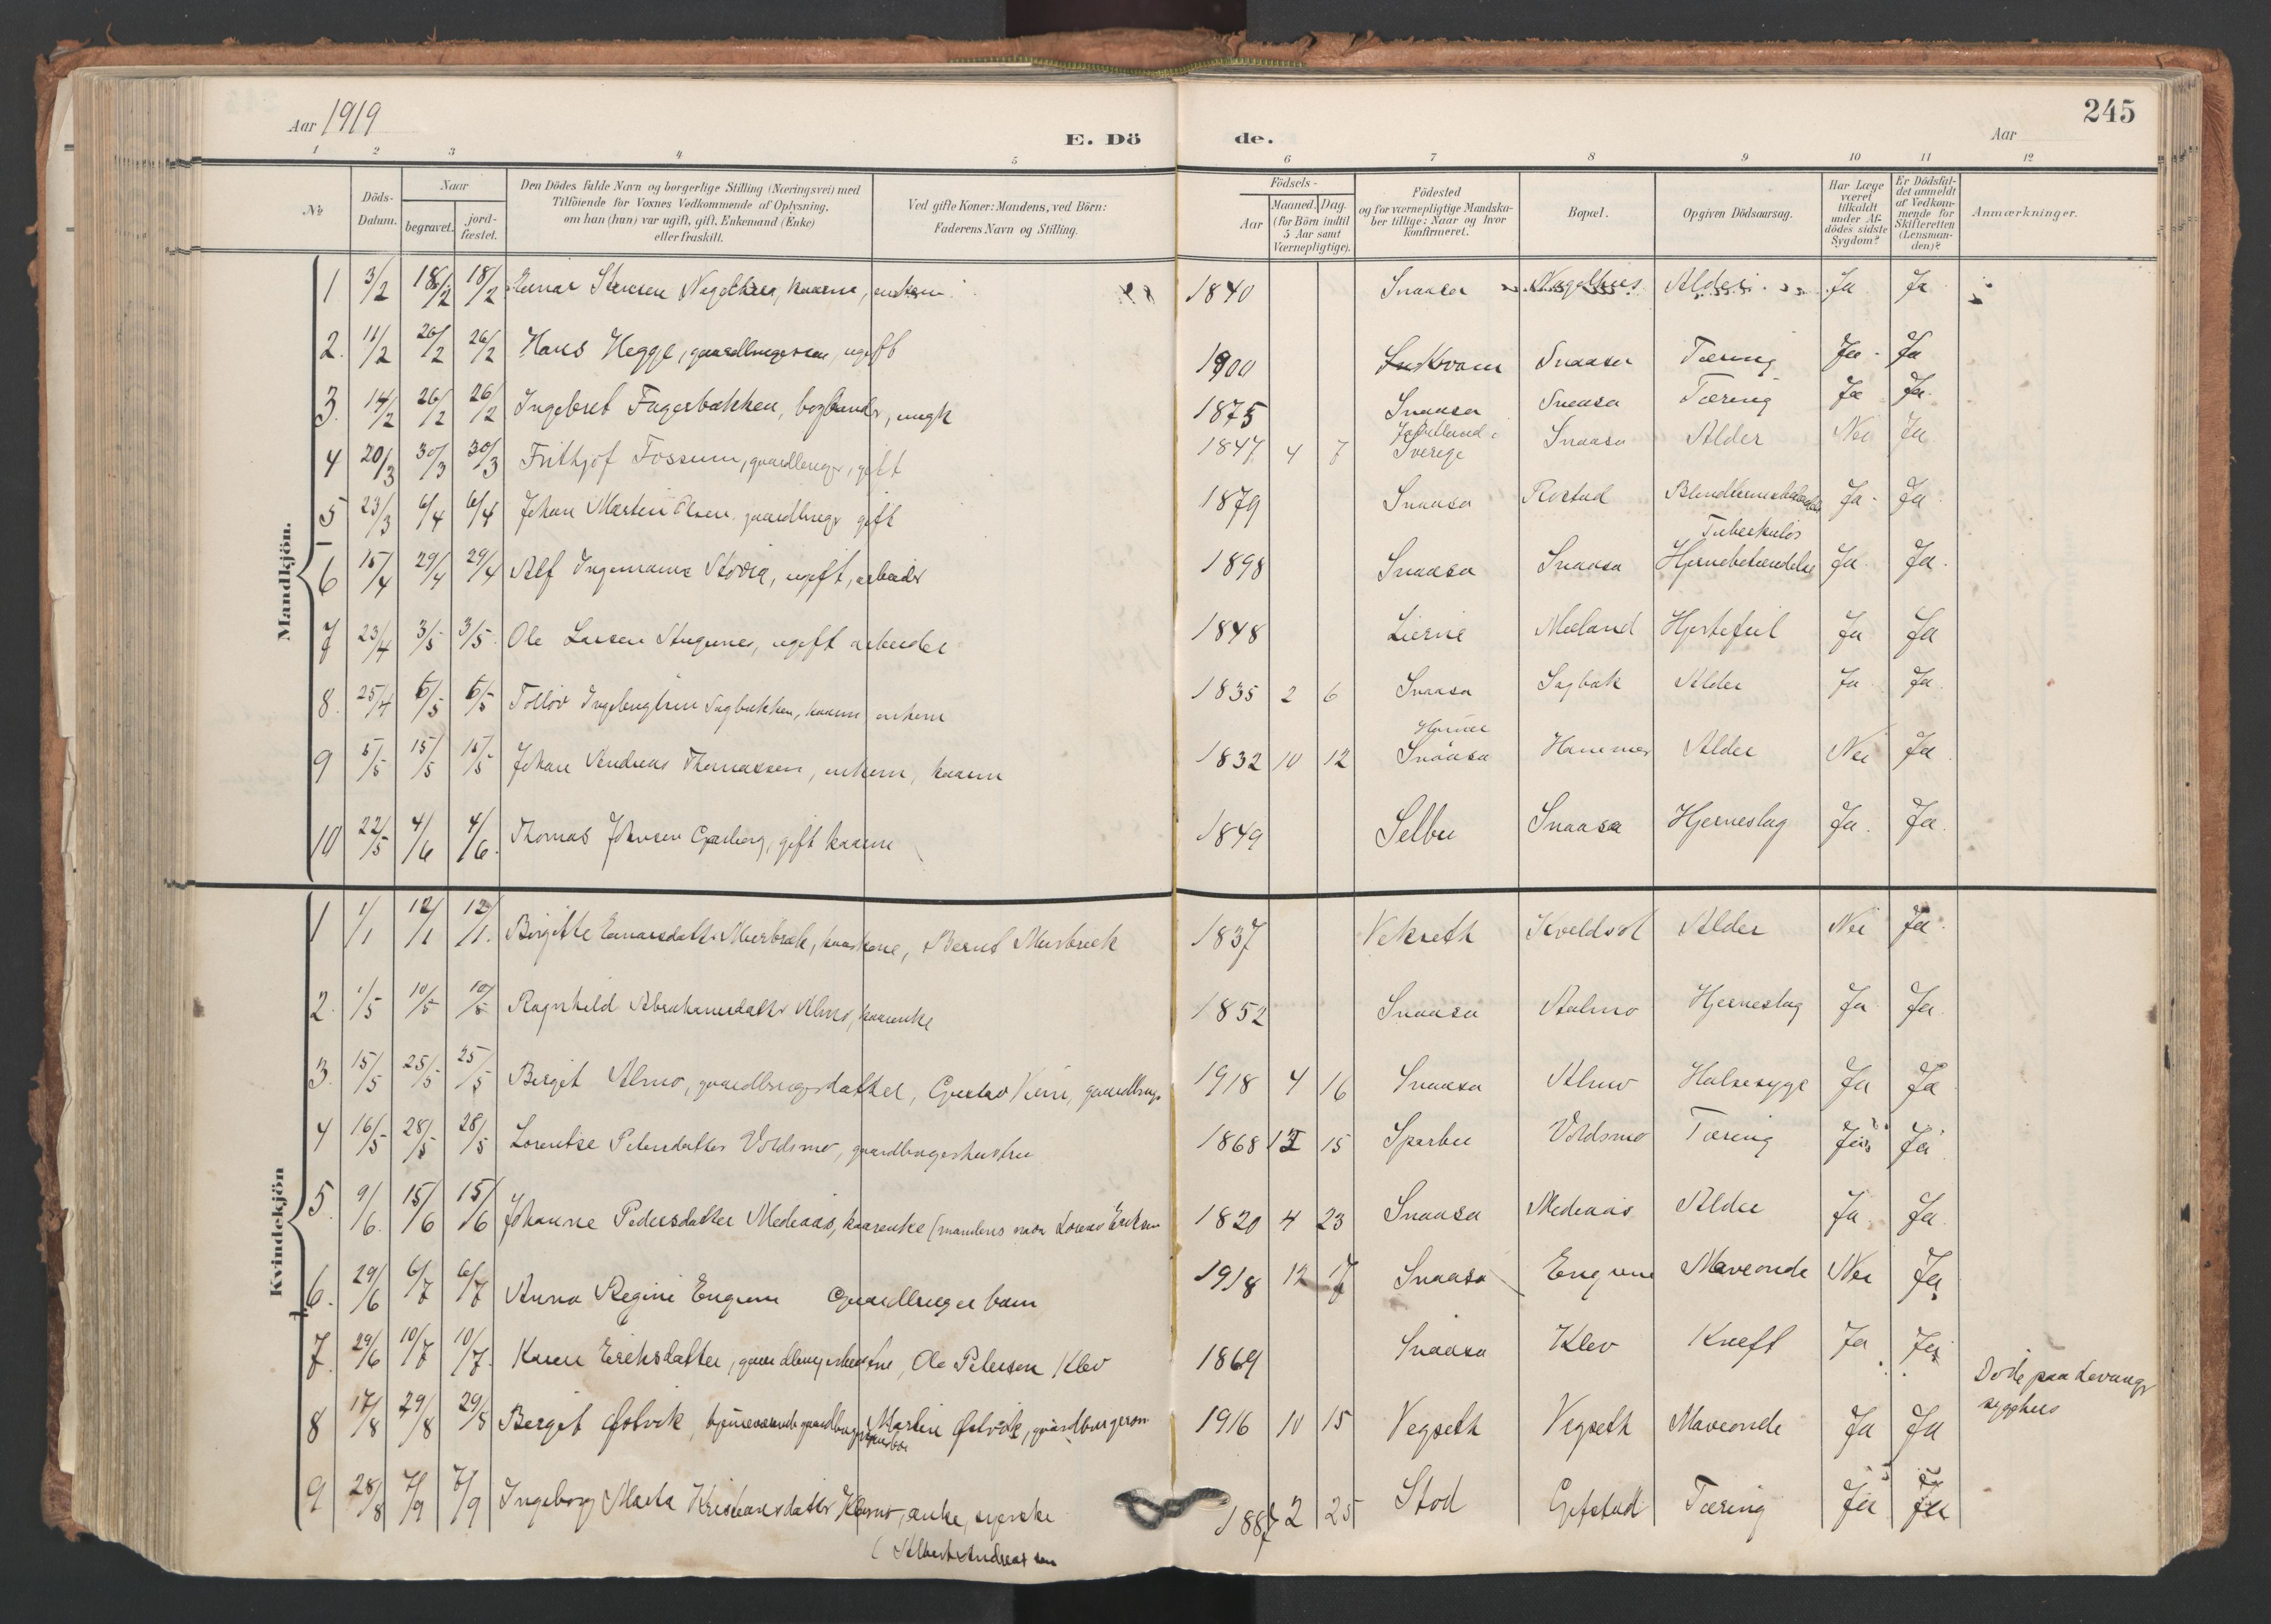 Aar 1919
E. Dö
de.
Aar
245
1 2 3 4 5 6 7 8 9 10 11 12
No
Döds-Datum.
Naar
begravet.
jord-fæstet.
Den Dödes fulde Navn og borgerlige Stilling (Næringsvei) med
Tilföiende for Voxnes Vedkommende af Oplysning,
om han (hun) var ugift, gift, Enkemand (Enke)
eller fraskilt.
Ved gifte Koner: Mandens, ved Börn:
Faderens Navn og Stilling.
Födsels-
Aar
Maaned. Dag.
(for Börn indtil
5 Aar samt
Værnepligtige).
Födested
og for værnepligtige Mandska-
ber tillige: Naar og hvor
Konfirmeret.
Bopæl.
Opgiven Dödsaarsag.
Har Læge
været
tilkaldt
under Af-
dödes sidste
Sygdom?
Er Dödsfal-
det anmeldt
af Vedkom-
mende for
Skifteretten
(Lensman-
den)?
Anmærkninger.
Mandkjön.
1 3/2 18/2 18/2 Einar kaarm, enkem 1840 Snaasa Alder Ja Ja
2. 11/2 26/2 26/2 Hans Hegge, gaardbrugersøn, ugift 1900 Kvam Snaasa Tæring Ja Ja
3. 14/2 26/2 26/2 Ingebret Fagerbakken, ungk 1875 Snaasa Snaasa Tæring Ja Ja
4 20/3 30/3 30/3 Frithjof Fossum, gaardbruger, gift 1847 4 7 Sverige Snaasa Alder Nei Ja
5 23/3 6/4 6/4 Johan Martin Olsen gaardbruger gift 1879 Snaasa Ja Ja
6 15/4 29/4 29/4 Alf Ingemann ugift, arbeider 1898 Snaasa Snaasa Tuberkuløs Hjernebetændelse Ja Ja
7 23/4 3/5 3/5 Ole Larsen ugift arbeider 1848 Lierne Meland Hjertefeil Ja Ja
8. 25/4 6/5 6/5 Tollov Sagbakken, kaarm enkem 1835 2 6 Snaasa Sagbak Alder Ja Ja
9 5/5 15/5 15/5 Johan Andreas Thomassen, enkem, kaarm 1832 10 12 Snaasa Hammer Alder Nei Ja
10 22/5 4/6 4/6 Thomas Johnsen gift kaarm 1849 Selbu Snaasa Hjerneslag Ja Ja
Kvindekjön
1 1/1 12/1 12/1 Birgitte Einarsdatter kaarkone, Bernt 1837 Vekseth Kveldvol Alder Nei Ja
2. 1/5 10/5 10/5 Ragnhild Abrahamsdatter Almo, kaarenke 1852 Snaasa Aalmo Hjerneslag Ja Ja
3. 15/5 25/5 25/5 Birgit Almo, gaardbrugerdatter, gaardbruger 1918 4 16 Snaasa Almo Halssyge Ja Ja
4 16/5 28/5 28/5 Lorentse Petersdatter Voldsmo, gaardbrugerhustru 1868 12 15 Sparbu Voldsmo Tæring Ja Ja
5. 9/6 15/6 15/6 Johanne Pedersdatter Mediaas, kaarenke (mandens navn Lorens Eriksen 1820 4 23 Snaasa Mediaas Alder Ja Ja
6. 29/6 6/7 6/7 Anna Regine Engum Gaardbruger barn 1918 12 17 Snaasa Engum Maveonde Nei Ja
7. 29/6 10/7 10/7 Karen Eriksdatter, gaardbrugerhustru, Ole Petersen Klev 1869 Snaasa Klev Kræft Ja Ja Døde paa Levanger sygehus
8 17/8 29/8 29/8 Bergit Østvik, Martin Østvik, gaardbrugersøn 1916 10 15 Vegseth Vegseth Maveonde Ja Ja
9 28/8 7/9 7/9 Ingeborg Marta Kristiansdatter enke, syerske 1887 2 25 Stod Gifstad Tæring Ja Ja
(Albert Andreassen